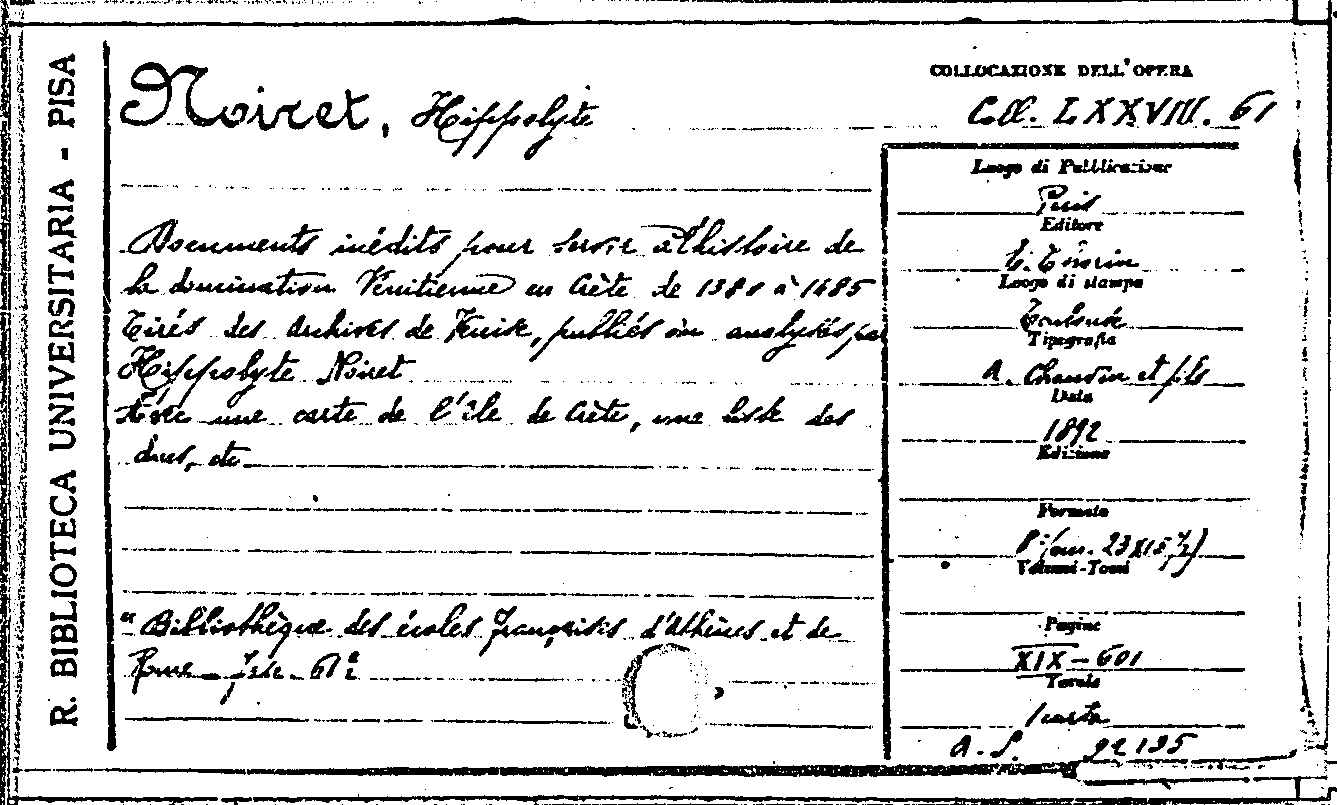 R. BIBLIOTECA UNIVERSITARIA - PISA
Noiret, Hippolyte
Documents inédits pour servir à l'histoire de
la domination Vénitienne en Crète de 1380 à 1485
tirés des archives de Venise, publiés ou analysés par
Hippolyte Noiret
Avec une carte de l'île de Crète, une liste des
ducs, etc
"Bibliothèque des écoles françaises d'Athènes et de
Rome - fasc. 61e
COLLOCAZIONE DELL'OPERA
Coll. LXXVIII. 61
Luogo di Pubblicazione
Paris
Editore
E. Thorin
Luogo di stampa
Toulouse
Tipografia
A. Chauvin et fils
Data
1892
Edizione
Formato
8° (cm. 23X15 ½)
Volumi-Tomi
Pagine
XIX-601
Tavole
1 carta
A. S. 92195